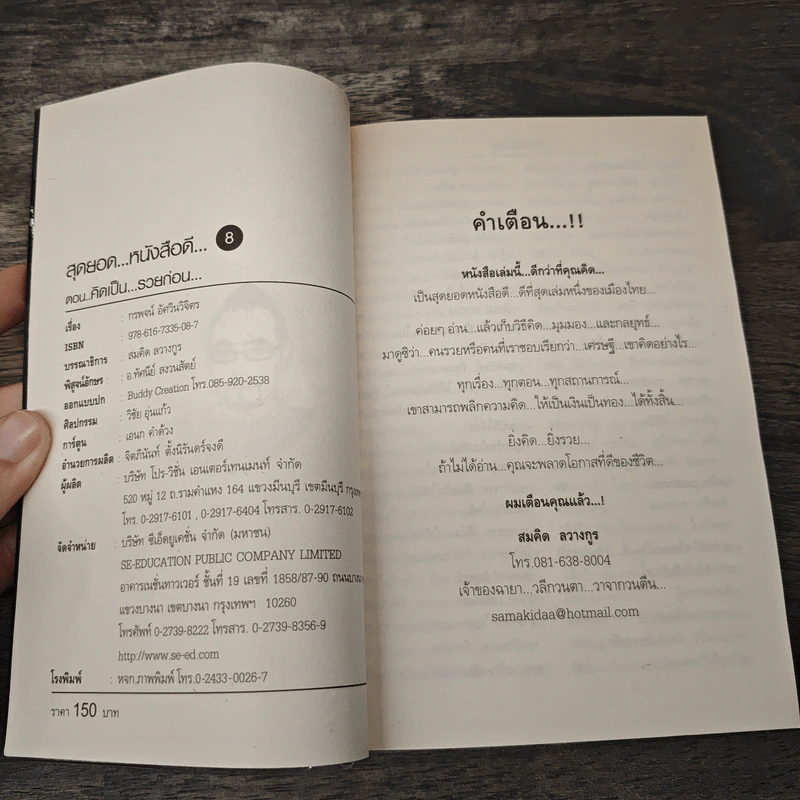 สุดยอด...หนังสือดี... 8
ตอน..คิดเป็น...รวยก่อน...
เรื่อง : กรพจน์ อัศวินวิจิตร
ISBN : 978-616-7335-08-7
บรรณาธิการ : สมคิด ลวางกูร
พิสูจน์อักษร : อ.ทัศนีย์ สงวนสัตย์
ออกแบบปก : Buddy Creation โทร.085-920-2538
ศิลปกรรม : วิชัย อุ่นแก้ว
การ์ตูน : เอนก คำด้วง
อำนวยการผลิต : จิตภินันท์ ตั้งนิรันดร์จงดี
ผู้ผลิต : บริษัท โปร-วิชั่น เอนเตอร์เทนเมนท์ จำกัด
520 หมู่ 12 ถ.รามคำแหง 164 แขวงมีนบุรี เขตมีนบุรี
โทร. 0-2917-6101 , 0-2917-6404 โทรสาร. 0-2917-6102
จัดจำหน่าย : บริษัท ซีเอ็ดยูเคชั่น จำกัด (มหาชน)
SE-EDUCATION PUBLIC COMPANY LIMITED
อาคารเนชั่นทาวเวอร์ ชั้นที่ 19 เลขที่ 1858/87-90 ถนนบางนา
แขวงบางนา เขตบางนา กรุงเทพฯ 10260
โทรศัพท์ 0-2739-8222 โทรสาร. 0-2739-8356-9
http://www.se-ed.com
โรงพิมพ์ : หจก.ภาพพิมพ์ โทร.0-2433-0026-7
ราคา 150 บาท
คำเตือน...!!
หนังสือเล่มนี้...ดีกว่าที่คุณคิด...
เป็นสุดยอดหนังสือดี...ดีที่สุดเล่มหนึ่งของเมืองไทย...
ค่อยๆ อ่าน...แล้วเก็บวิธีคิด...มุมมอง...และกลยุทธ์...
มาดูซิว่า...คนรวยหรือคนที่เราชอบเรียกว่า...เศรษฐี...เขาคิดอย่างไร...
ทุกเรื่อง...ทุกตอน...ทุกสถานการณ์...
เขาสามารถพลิกความคิด...ให้เป็นเงินเป็นทอง...ได้ทั้งสิ้น...
ยิ่งคิด...ยิ่งรวย...
ถ้าไม่ได้อ่าน...คุณจะพลาดโอกาสที่ดีของชีวิต...
ผมเตือนคุณแล้ว...!
สมคิด ลวางกูร
โทร.081-638-8004
เจ้าของฉายา...วลีกวนตา...วาจากวนตีน...
samakidaa@hotmail.com